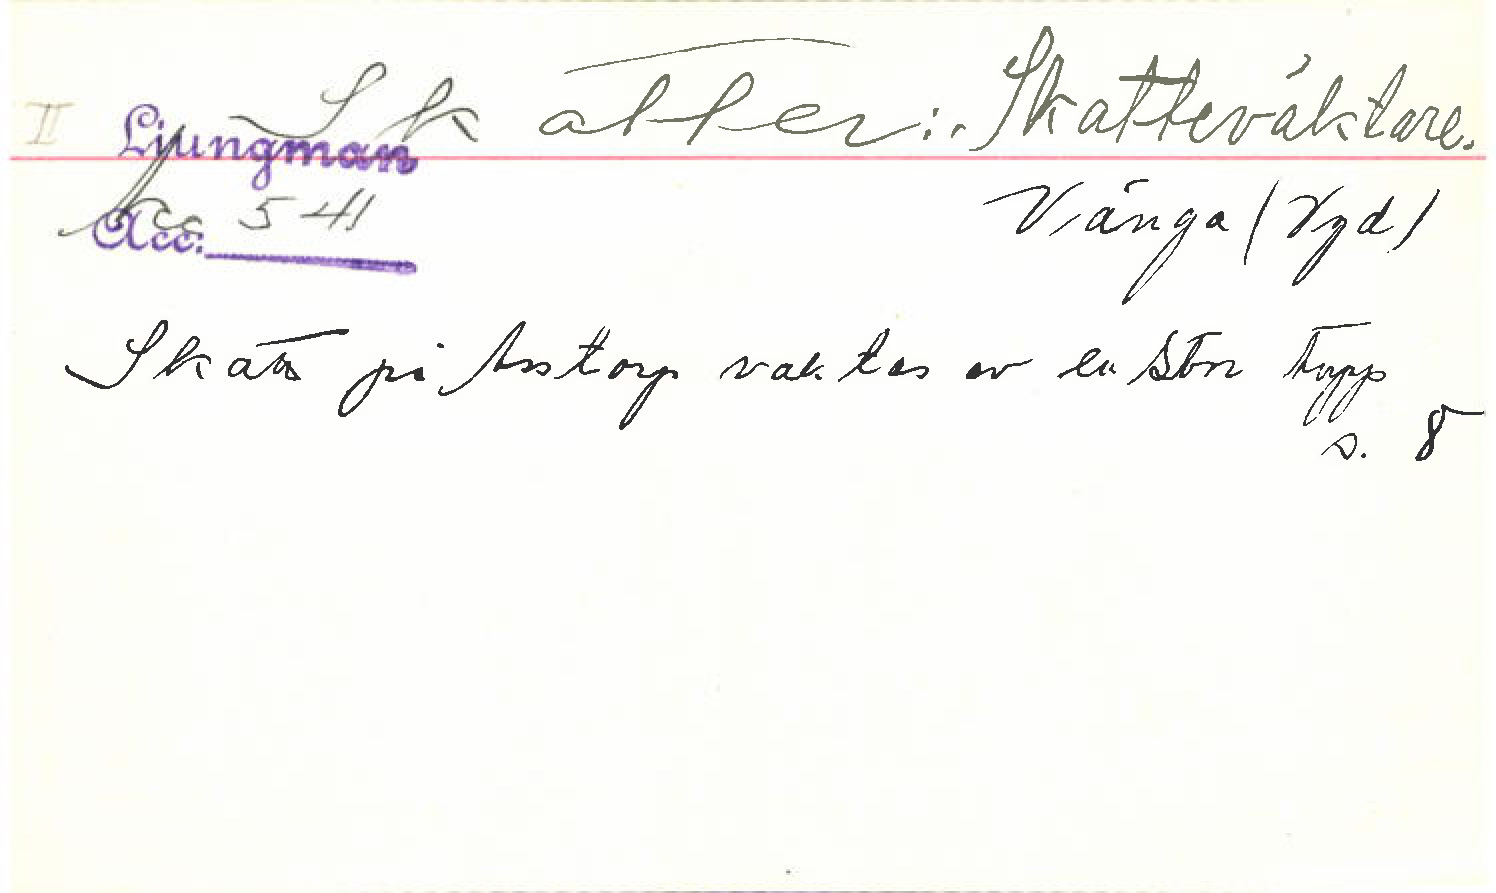 II Ljungman Skatter: Skatteväktare.
Acc: Acc 541 Vånga (Vgd)
Skatt på Asstorp vaktas av en stor tupp
s. 8